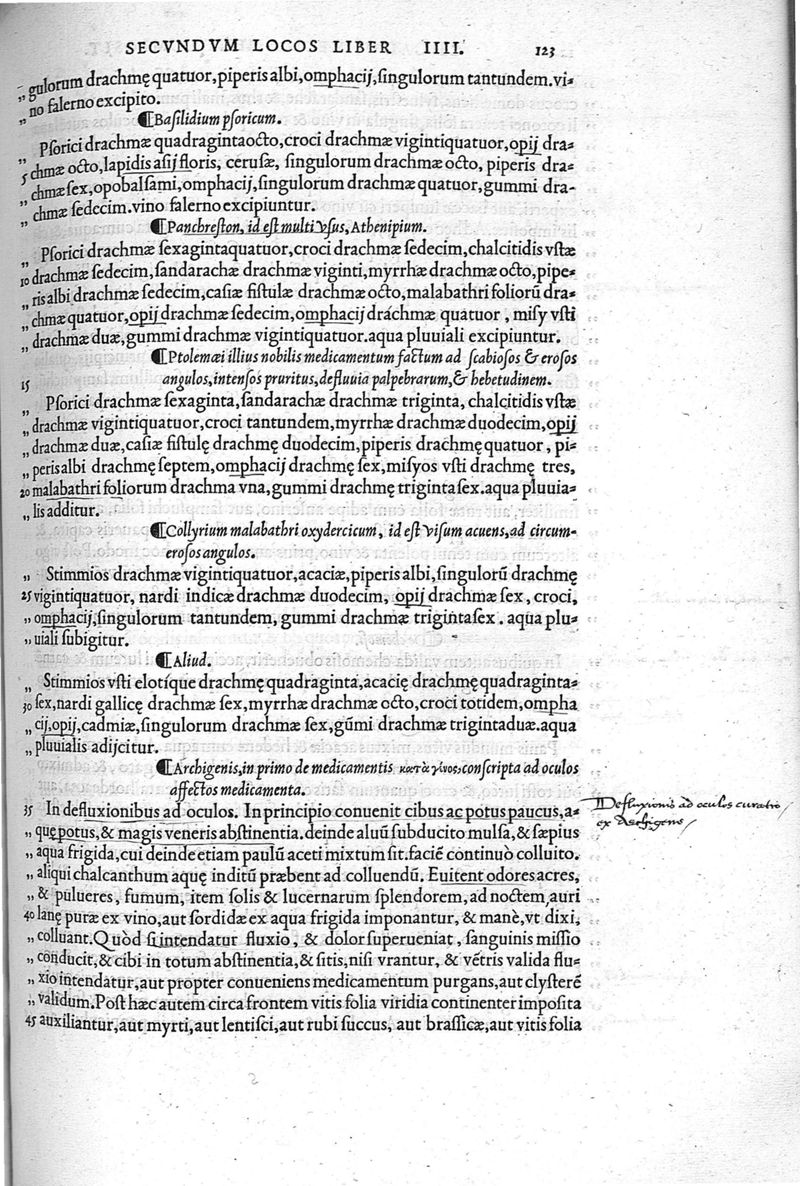 SECVNDVM LOCOS LIBER IIII. 123
gulorum drachmę quatuor, piperis albi, omphacij, ſingulorum tantundem. vi-
„ no falerno excipito.
„ ¶Baſilidium pſoricum.
Pſorici drachmæ quadragintaocto, croci drachmæ vigintiquatuor, opij dra-
„ chmæ octo, lapidis aſij floris, ceruſæ, ſingulorum drachmæ octo, piperis dra-
5 chmæ ſex, opobalſami, omphacij, ſingulorum drachmæ quatuor, gummi dra-
„ chmæ ſedecim. vino falerno excipiuntur.
¶Panchreſton, id eſt multi vſus, Athenipium.
Pſorici drachmæ ſexagintaquatuor, croci drachmæ ſedecim, chalcitidis vſtæ
10 drachmæ ſedecim, ſandarachæ drachmæ viginti, myrrhæ drachmæ octo, pipe-
„ ris albi drachmæ ſedecim, caſiæ fiſtulæ drachmæ octo, malabathri foliorū dra-
„ chmæ quatuor, opij drachmæ ſedecim, omphacij drachmæ quatuor, miſy vſti
„ drachmæ duæ, gummi drachmæ vigintiquatuor. aqua pluuiali excipiuntur.
¶Ptolemæi illius nobilis medicamentum factum ad ſcabioſos & eroſos
15 angulos, intenſos pruritus, defluuia palpebrarum, & hebetudinem.
„ Pſorici drachmæ ſexaginta, ſandarachæ drachmæ triginta, chalcitidis vſtæ
„ drachmæ vigintiquatuor, croci tantundem, myrrhæ drachmæ duodecim, opij
„ drachmæ duæ, caſiæ fiſtulę drachmę duodecim, piperis drachmę quatuor, pi-
„ peris albi drachmę ſeptem, omphacij drachmę ſex, miſyos vſti drachmę tres,
20 malabathri foliorum drachma vna, gummi drachmę trigintaſex. aqua pluuia-
„ lis additur.
¶Collyrium malabathri oxydercicum, id eſt viſum acuens, ad circum-
eroſos angulos.
„ Stimmios drachmæ vigintiquatuor, acaciæ, piperis albi, ſingulorū drachmę
25 vigintiquatuor, nardi indicæ drachmæ duodecim, opij drachmæ ſex, croci,
„ omphacij, ſingulorum tantundem, gummi drachmæ trigintaſex. aqua plu-
„ uiali ſubigitur.
¶Aliud.
„ Stimmios vſti elotíque drachmę quadraginta, acacię drachmę quadraginta-
30 ſex, nardi gallicę drachmæ ſex, myrrhæ drachmæ octo, croci totidem, ompha
„ cij, opij, cadmiæ, ſingulorum drachmæ ſex, gūmi drachmæ trigintaduæ. aqua
„ pluuialis adijcitur.
¶Archigenis, in primo de medicamentis κατὰ γένος, conſcripta ad oculos
affectos medicamenta.
35 In defluxionibus ad oculos. In principio conuenit cibus ac potus paucus, a-
„ quę potus, & magis veneris abſtinentia. deinde aluū ſubducito mulſa, & ſæpius
„ aqua frigida, cui deinde etiam paulū aceti mixtum ſit. faciē continuò colluito.
„ aliqui chalcanthum aquę inditū præbent ad colluendū. Euitent odores acres,
„ & pulueres, fumum, item ſolis & lucernarum ſplendorem, ad noctem, auri
40 lanę puræ ex vino, aut ſordidæ ex aqua frigida imponantur, & manè, vt dixi,
„ colluant. Quòd ſi intendatur fluxio, & dolor ſuperueniat, ſanguinis miſſio
„ conducit, & cibi in totum abſtinentia, & ſitis, niſi vrantur, & vētris valida flu-
„ xio intendatur, aut propter conueniens medicamentum purgans, aut clyſterē
„ validum. Poſt hæc autem circa frontem vitis folia viridia continenter impoſita
45 auxiliantur, aut myrti, aut lentiſci, aut rubi ſuccus, aut braſſicæ, aut vitis folia
Defluxionis ad oculos curatio
ex Archigene